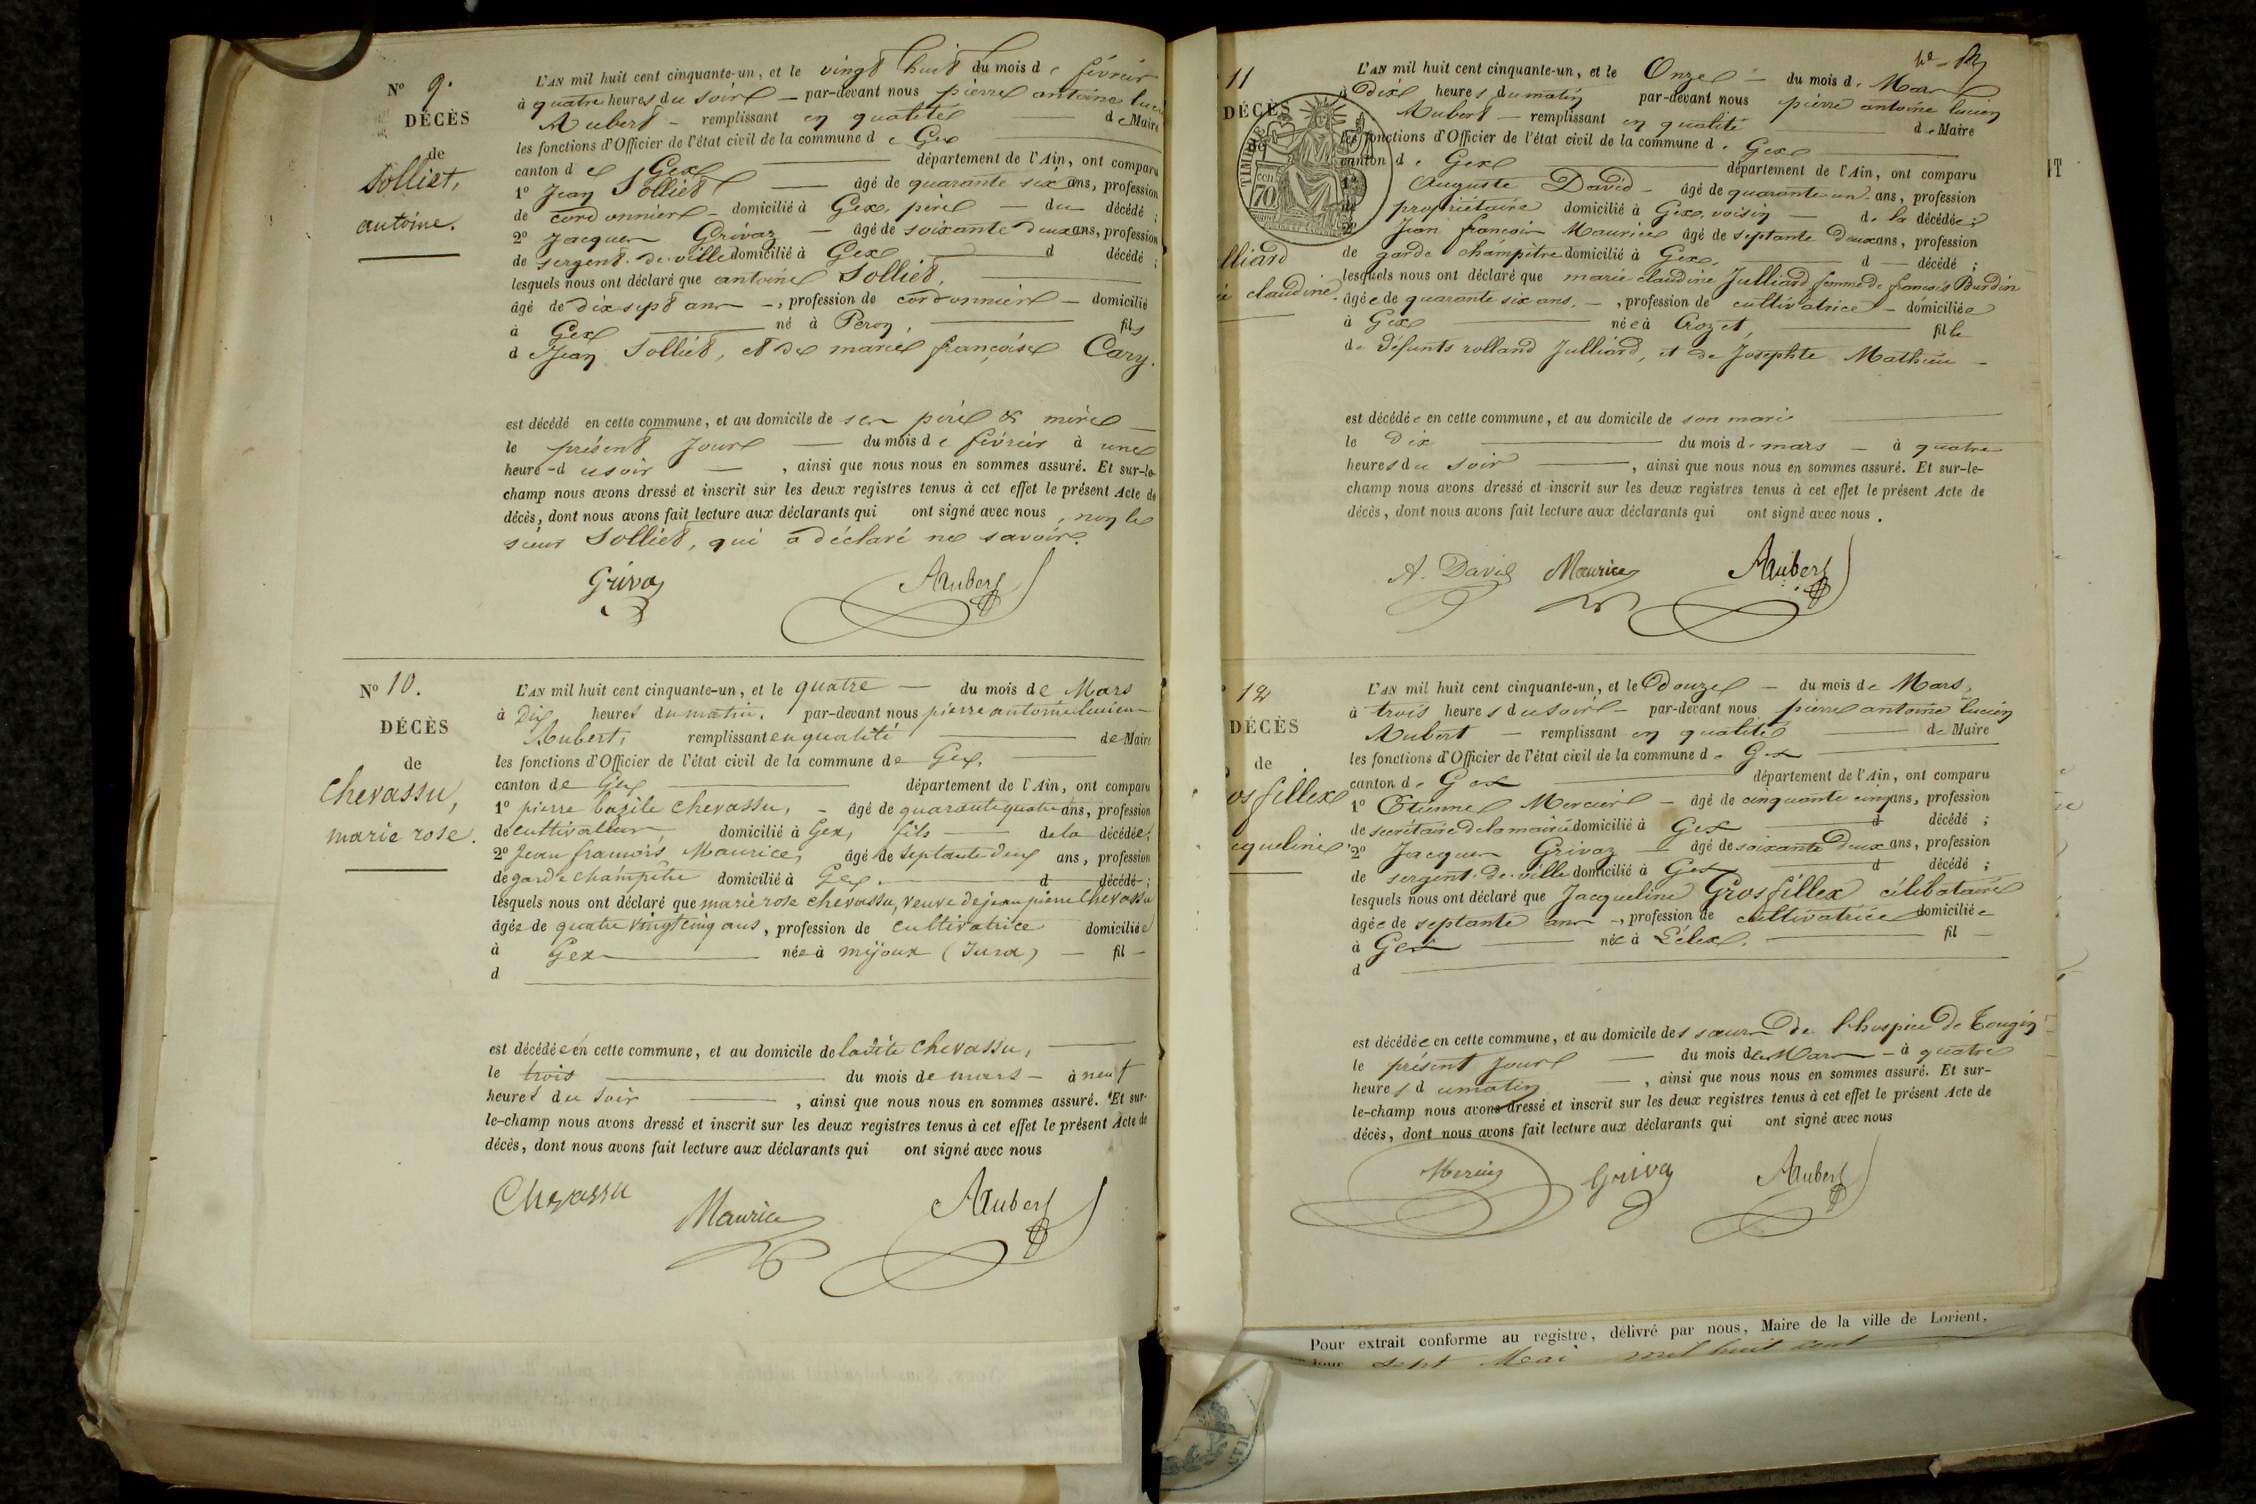 Nº 9.
DÉCÈS
de
Solliet,
antoine.
L'AN mil huit cent cinquante-un, et le vingt huit du mois de février
à quatre heures du soir — par-devant nous pierre antoine lucien
Aubert — remplissant en qualité de Maire
les fonctions d'Officier de l'état civil de la commune de Gex
canton de Gex département de l'Ain, ont comparu
1º Jean Solliet — âgé de quarante six ans, profession
de cordonnier — domicilié à Gex, père — du décédé ;
2º Jacques Grivaz — âgé de soixante deux ans, profession
de sergent de ville domicilié à Gex d décédé ;
lesquels nous ont déclaré que antoine Solliet,
âgé de dix sept ans —, profession de cordonnier — domicilié
à Gex né à Peron, fils
de Jean Solliet, et de marie françoise Cary.
est décédé en cette commune, et au domicile de ses père & mère
le présent jour — du mois de février à une
heure du soir — , ainsi que nous nous en sommes assuré. Et sur-le-
champ nous avons dressé et inscrit sur les deux registres tenus à cet effet le présent Acte de
décès, dont nous avons fait lecture aux déclarants qui ont signé avec nous, non le
sieur Solliet, qui a déclaré ne savoir.
Grivaz Aubert
Nº 10.
DÉCÈS
de
Chevassu,
marie rose.
L'AN mil huit cent cinquante-un, et le quatre — du mois de Mars
à Dix heures du matin. par-devant nous pierre antoine lucien
Aubert, remplissant en qualité de Maire
les fonctions d'Officier de l'état civil de la commune de Gex,
canton de Gex département de l'Ain, ont comparu
1º pierre bazile chevassu, — âgé de quarante quatre ans, profession
de cultivateur, domicilié à Gex, fils — de la décédée ;
2º Jean francois Maurice, âgé de septante deux ans, profession
de garde champêtre domicilié à Gex. d décédé ;
lesquels nous ont déclaré que marie rose chevassu, veuve de jean pierre Chevassu
âgée de quatre vingt cinq ans, profession de cultivatrice domiciliée
à Gex née à mijoux (Jura) — fil —
d
est décédée en cette commune, et au domicile de ladite chevassu,
le trois du mois de mars — à neuf
heures du soir , ainsi que nous nous en sommes assuré. Et sur-
le-champ nous avons dressé et inscrit sur les deux registres tenus à cet effet le présent Acte de
décès, dont nous avons fait lecture aux déclarants qui ont signé avec nous
Chevassu Maurice Aubert
11
DÉCÈS
lliard
claudine.
TIMBRE
70
L'AN mil huit cent cinquante-un, et le Onze — du mois de Mars
à Dix heures du matin par-devant nous pierre antoine lucien
Aubert — remplissant en qualité de Maire
les fonctions d'Officier de l'état civil de la commune de Gex
canton de Gex département de l'Ain, ont comparu
1º Auguste David — âgé de quarante un ans, profession
de propriétaire domicilié à Gex, voisin — de la décédée ;
2º Jean françois Maurice âgé de septante deux ans, profession
de garde champêtre domicilié à Gex. d — décédé ;
lesquels nous ont déclaré que marie claudine Julliard femme de francois Burdin
âgée de quarante six ans. — , profession de cultivatrice — domiciliée
à Gex née à Crozet, fille
de défunts rolland Julliard, et de Josephte Mathieu —
est décédée en cette commune, et au domicile de son mari
le dix du mois de mars — à quatre
heures du soir , ainsi que nous nous en sommes assuré. Et sur-le-
champ nous avons dressé et inscrit sur les deux registres tenus à cet effet le présent Acte de
décès, dont nous avons fait lecture aux déclarants qui ont signé avec nous.
A. David Maurice Aubert
12
DÉCÈS
de
osfillex
cqueline.
L'AN mil huit cent cinquante-un, et le Douze — du mois de Mars,
à trois heures du soir — par-devant nous pierre antoine lucien
Aubert — remplissant en qualité de Maire
les fonctions d'Officier de l'état civil de la commune de Gex
canton de Gex département de l'Ain, ont comparu
1º Etienne Mercier — âgé de cinquante cinq ans, profession
de secrétaire de la mairie domicilié à Gex d décédé ;
2º Jacques Grivaz — âgé de soixante deux ans, profession
de sergent de ville domicilié à Gex d décédé ;
lesquels nous ont déclaré que Jacqueline Grosfillex célibataire
âgée de septante ans —, profession de cultivatrice domiciliée
à Gex née à Lélex. fil —
d
est décédée en cette commune, et au domicile des sœurs De l'hospice De Tougin
le présent jour — du mois de Mars — à quatre
heures du matin — , ainsi que nous nous en sommes assuré. Et sur-
le-champ nous avons dressé et inscrit sur les deux registres tenus à cet effet le présent Acte de
décès, dont nous avons fait lecture aux déclarants qui ont signé avec nous
Mercier Grivaz Aubert
Pour extrait conforme au registre, délivré par nous, Maire de la ville de Lorient,
jour sept Mai mil huit cent